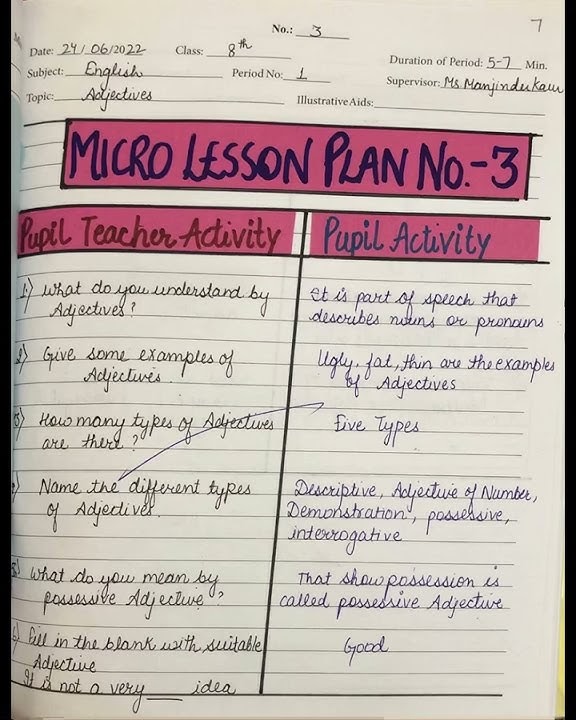 7
No.: 3
Date: 24/06/2022 Class: 8th Duration of Period: 5-7 Min.
Subject: English Period No: 1 Supervisor: Ms. Manjinder Kaur
Topic: Adjectives Illustrative Aids:
MICRO LESSON PLAN No.-3
Pupil Teacher Activity
Pupil Activity
1) What do you understand by
Adjectives?
It is part of speech that
describes nouns or pronouns
2) Give some examples of
Adjectives.
Ugly, fat, thin are the examples
of Adjectives
3) How many types of Adjectives
are there?
Five Types
Name the different types
of Adjectives.
Descriptive, Adjective of Number,
Demonstration, possessive,
interrogative
5) What do you mean by
possessive Adjective?
That show possession is
called possessive Adjective
6) Fill in the blank with suitable
Adjective
It is not a very ___ idea
Good